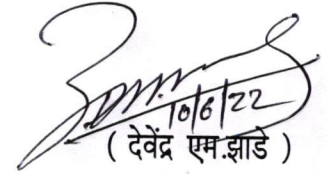 10/6/22
( देवेंद्र एम.झाडे )